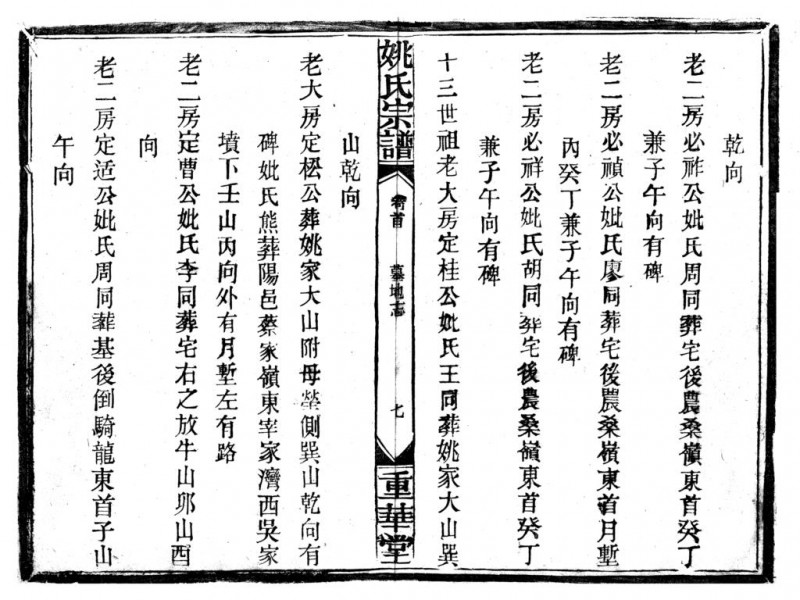 乾向
老二房必祚公妣氏周同葬宅後農桑嶺東首癸丁
兼子午向有碑
老二房必禎公妣氏廖同葬宅後農桑嶺東首月塹
內癸丁兼子午向有碑
老二房必祥公妣氏胡同葬宅後農桑嶺東首癸丁
兼子午向有碑
十三世祖老大房定桂公妣氏王同葬姚家大山巽
姚氏宗譜
卷首
墓地志
七
重華堂
山乾向
老大房定松公葬姚家大山附母塋側巽山乾向有
碑妣氏熊葬陽邑蔡家嶺東宰家灣西吳家
墳下壬山丙向外有月塹左有路
老二房定曹公妣氏李同葬宅右之放牛山夘山酉
向
老二房定适公妣氏周同葬基後倒騎龍東首子山
午向